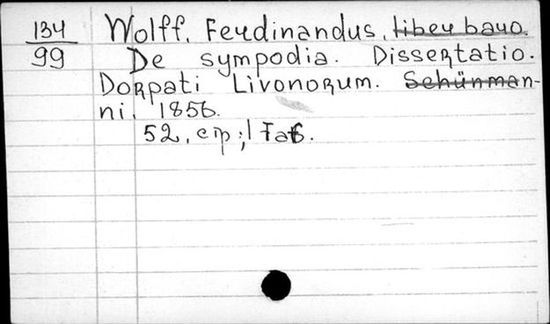 134 Wolff, Ferdinandus, liber baro.
99 De sympodia. Dissertatio.
Dorpati Livonorum. Schünman-
ni. 1856.
52. стр; 1 Таб.